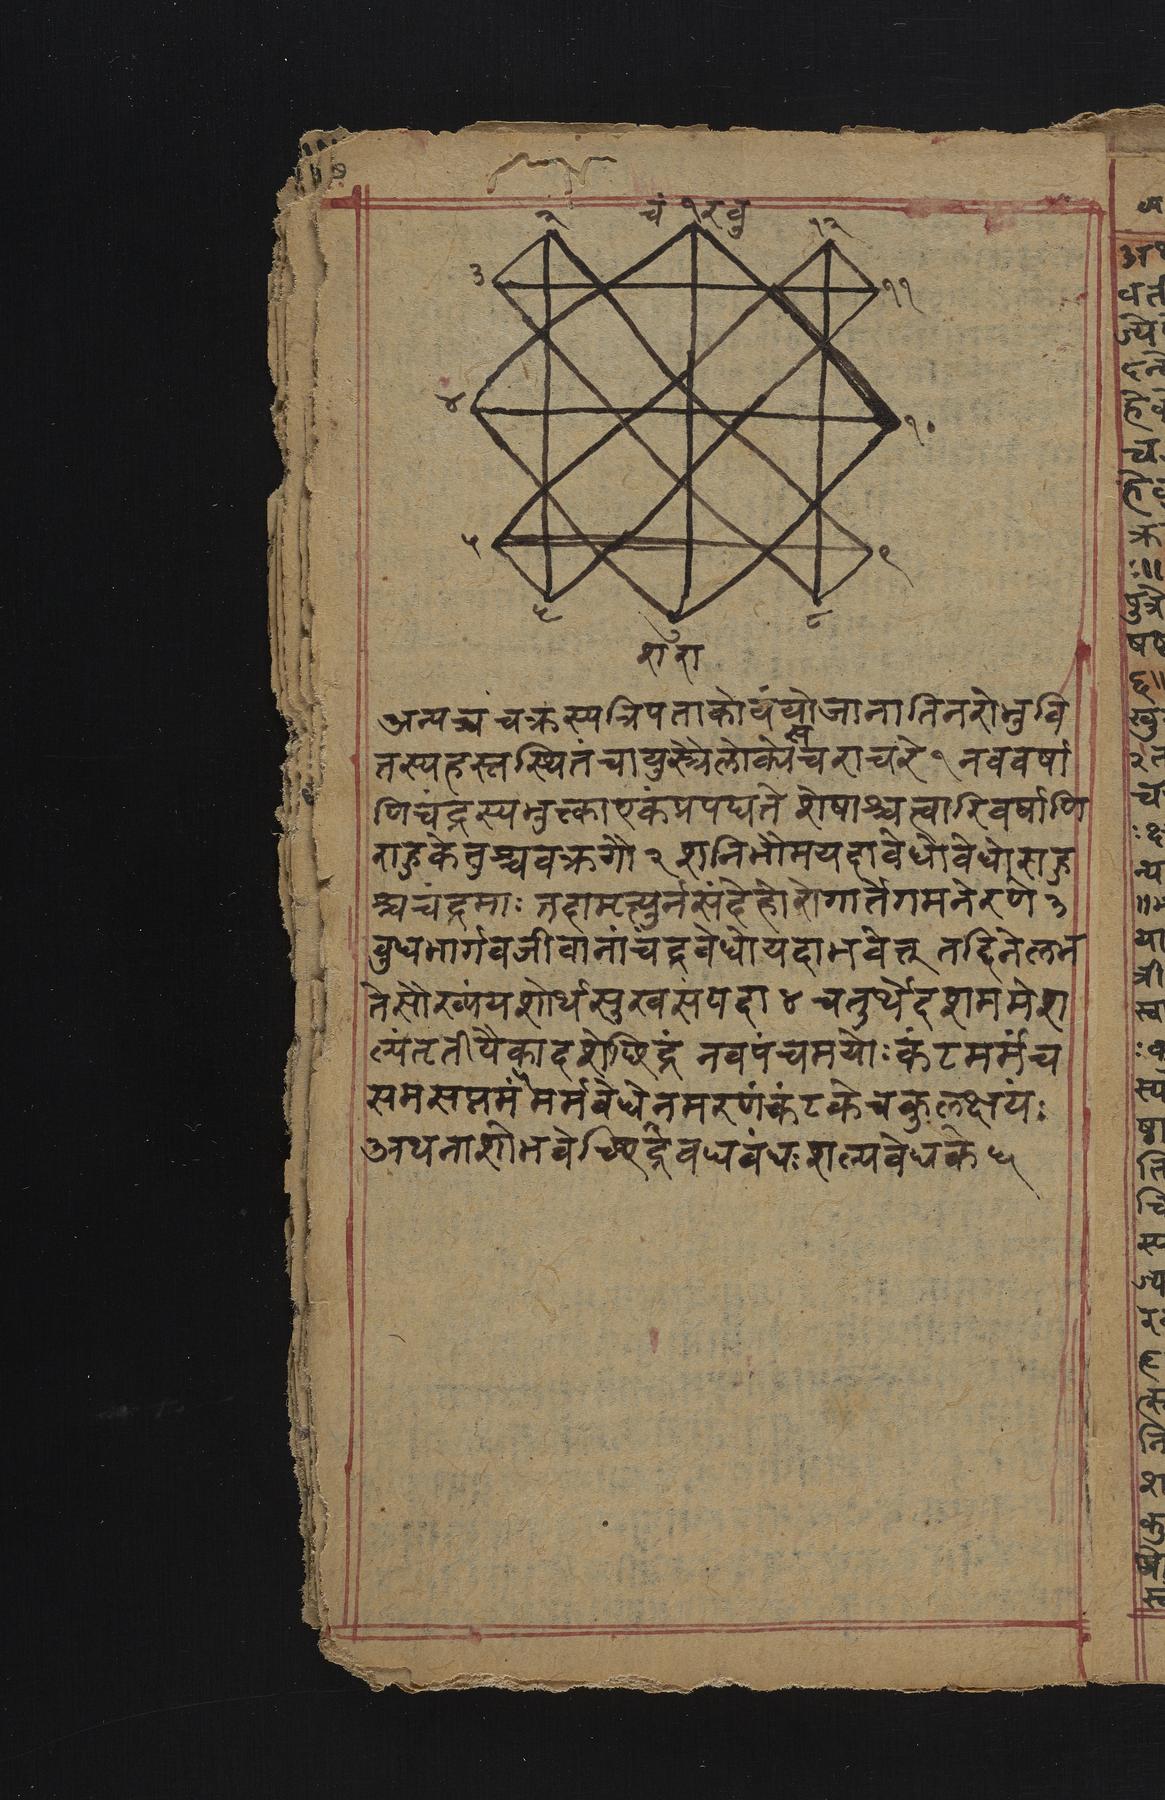 २ चं १ र बु १२
३ ११
४ १०
५ ९
६ ७ ८
श रा
अन्यच्च चक्रस्य त्रिपताकोयं यो जानाति नरो भुवि
तस्य हस्तस्थितं चायुस्त्रैलोक्ये सचराचरे १ नववर्षा
णि चंद्रस्य भुक्त्का एकं प्रपद्यते शेषाश्चत्वारि वर्षाणि
राहुकेतुश्च वक्रगौ २ शनिभौमयदावेधौ वेधो राहु
श्च चंद्रमाः तदामृत्युर्न संदेहो रोगार्ते गमने रणे ३
बुधभार्गवजीवानां चंद्रवेधो यदा भवेत् तद्दिने लभ
ते सौख्यं यशोर्थसुखसंपदा ४ चतुर्थे दशममे श
ल्यं तृतीयैकादशे छिद्रं नवपंचमयोः कंटमर्मं च
समसप्तमं मर्मवेधेन मरणं कंटके च कुलक्षयंः
अथनाशो भवेच्छिद्रे वधबंधः शल्यवेधके ५